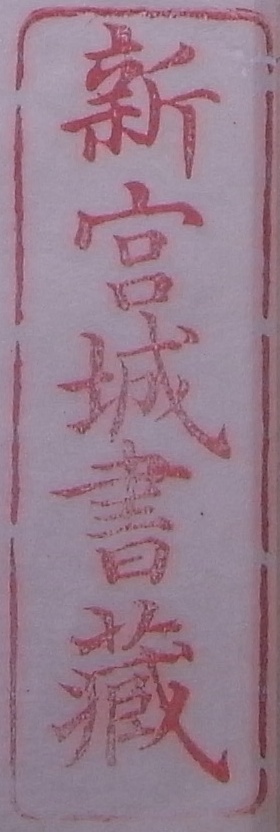 新宮城書藏